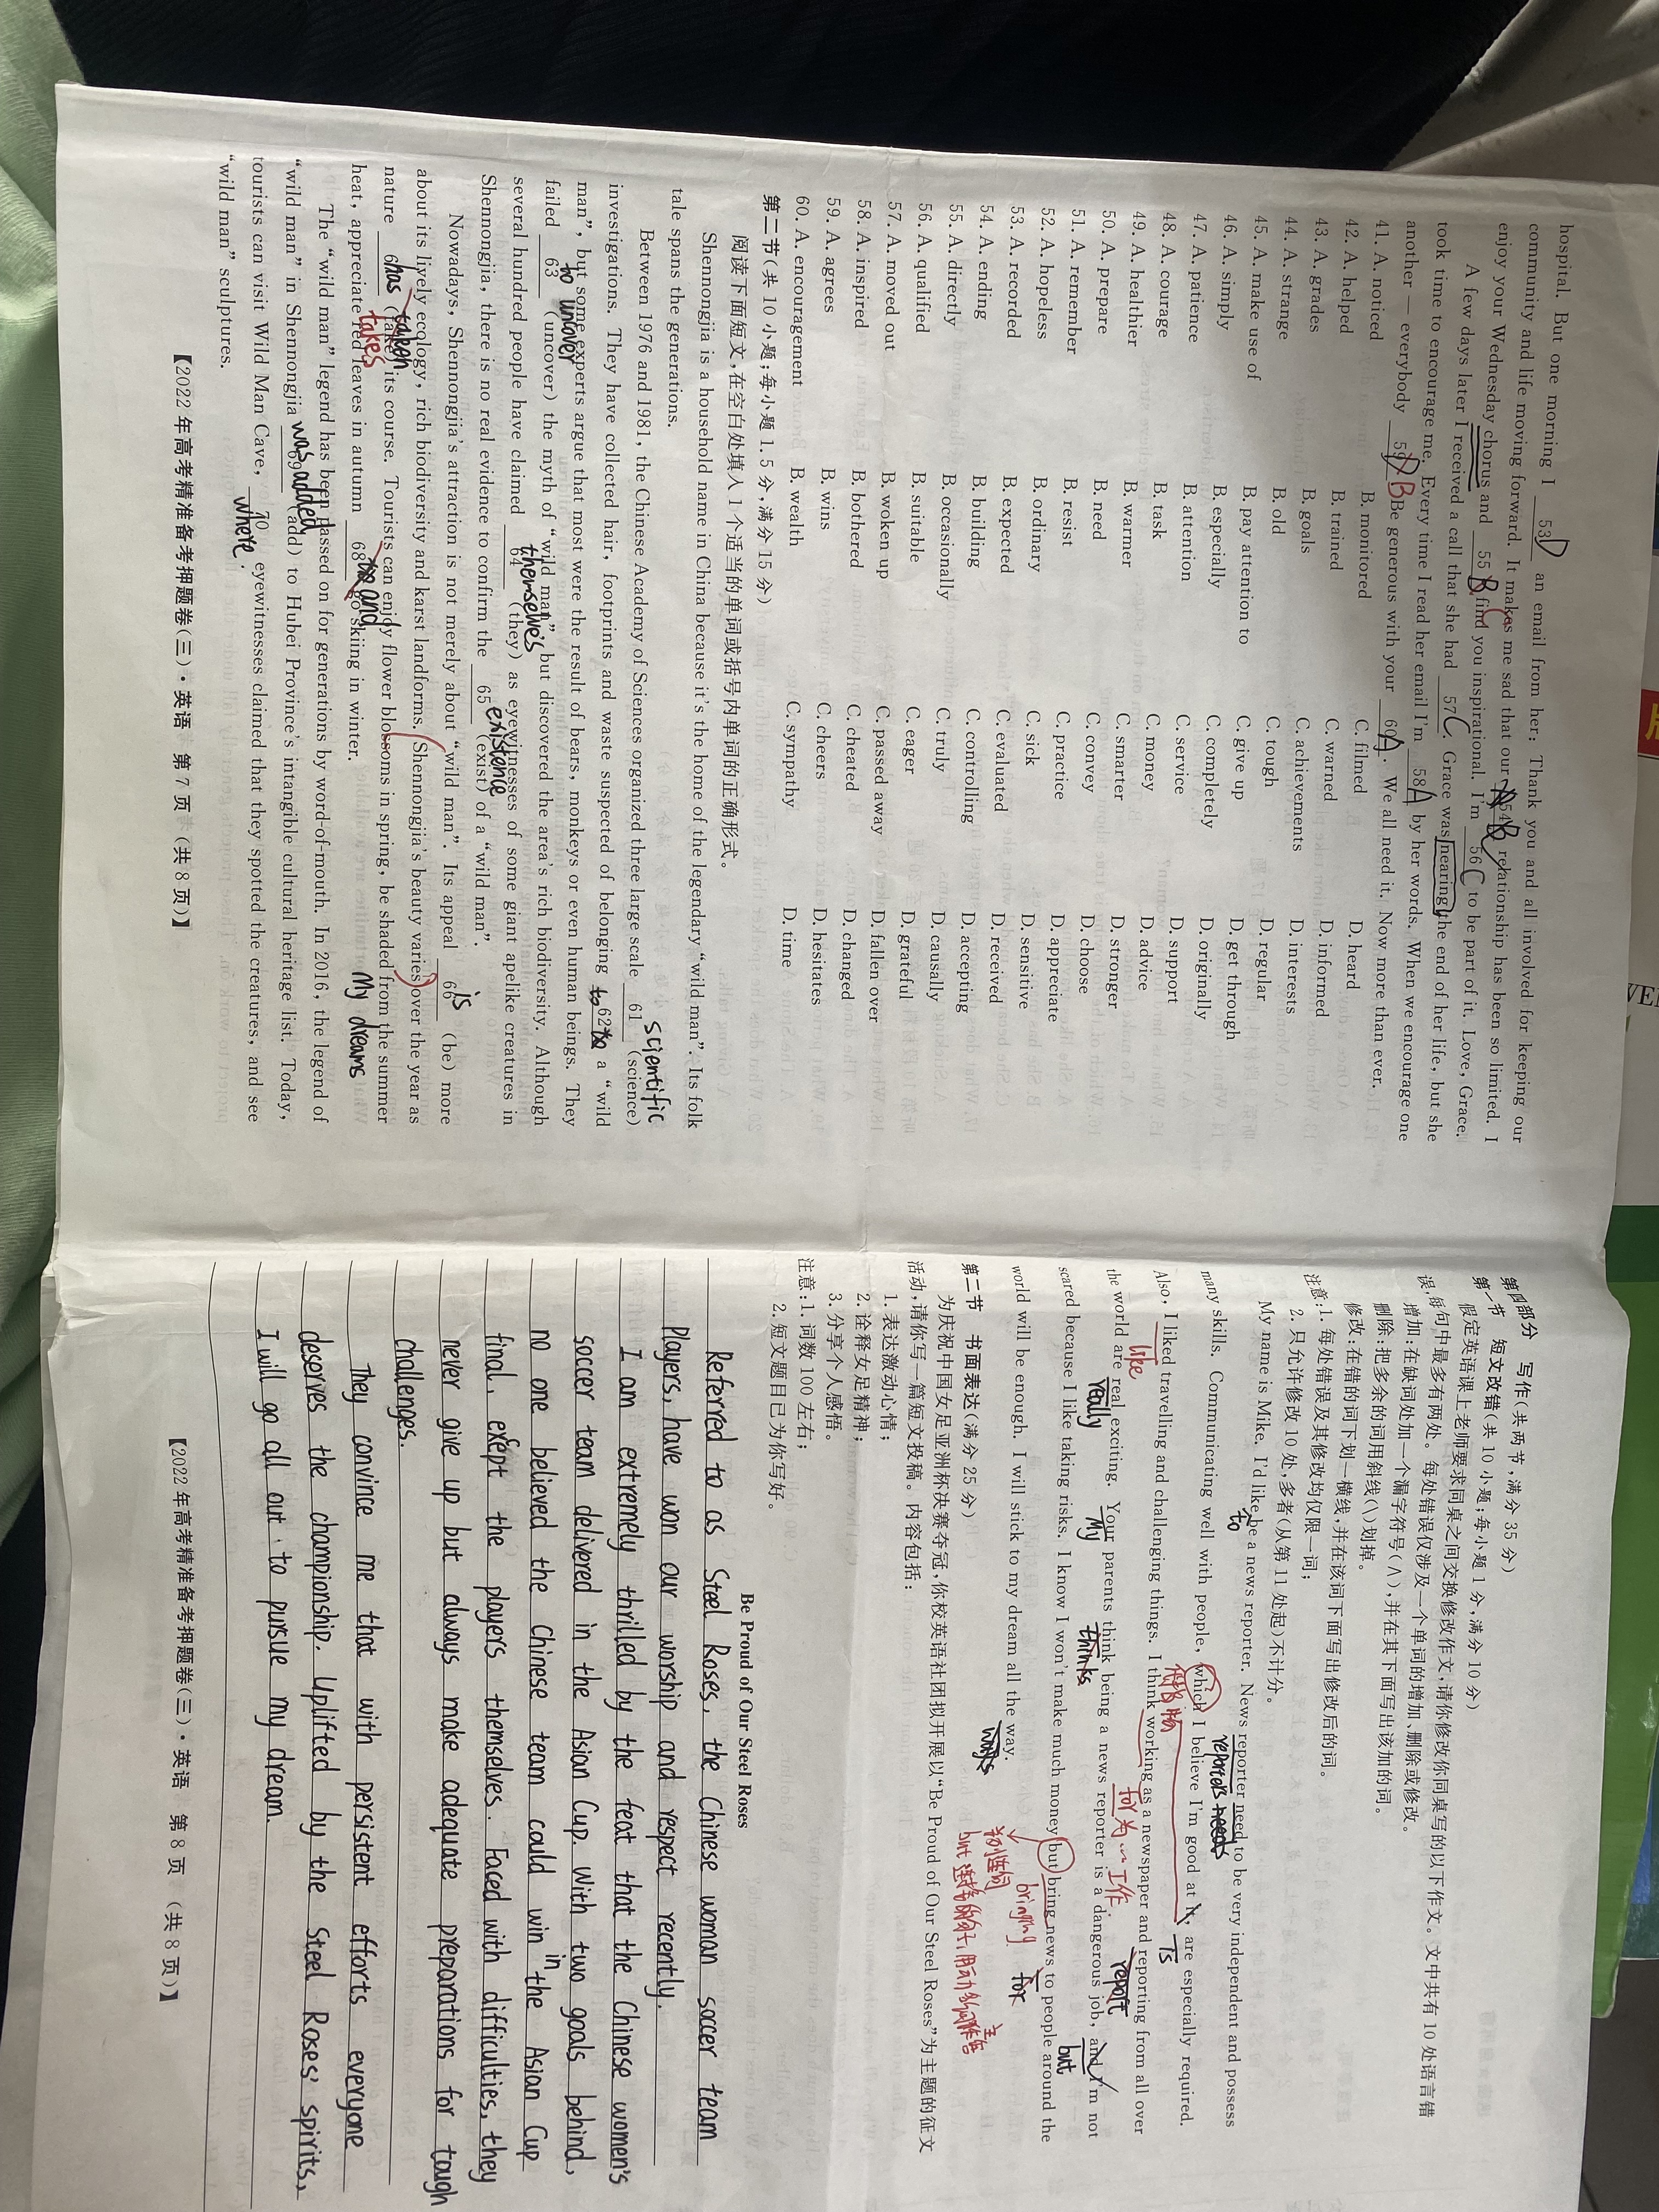 hospital. But one morning I 53 D an email from her: Thank you and all involved for keeping our
community and life moving forward. It makes me sad that our 54 B relationship has been so limited. I
enjoy your Wednesday chorus and 55 B C find you inspirational. I'm 56 C to be part of it. Love, Grace.
A few days later I received a call that she had 57 C. Grace was nearing the end of her life, but she
took time to encourage me. Every time I read her email I'm 58 A by her words. When we encourage one
another — everybody 59 D B Be generous with your 60 A. We all need it. Now more than ever.
41. A. noticed B. monitored C. filmed D. heard
42. A. helped B. trained C. warned D. informed
43. A. grades B. goals C. achievements D. interests
44. A. strange B. old C. tough D. regular
45. A. make use of B. pay attention to C. give up D. get through
46. A. simply B. especially C. completely D. originally
47. A. patience B. attention C. service D. support
48. A. courage B. task C. money D. advice
49. A. healthier B. warmer C. smarter D. stronger
50. A. prepare B. need C. convey D. choose
51. A. remember B. resist C. practice D. appreciate
52. A. hopeless B. ordinary C. sick D. sensitive
53. A. recorded B. expected C. evaluated D. received
54. A. ending B. building C. controlling D. accepting
55. A. directly B. occasionally C. truly D. causally
56. A. qualified B. suitable C. eager D. grateful
57. A. moved out B. woken up C. passed away D. fallen over
58. A. inspired B. bothered C. cheated D. changed
59. A. agrees B. wins C. cheers D. hesitates
60. A. encouragement B. wealth C. sympathy D. time
第二节(共 10 小题;每小题 1.5 分,满分 15 分)
阅读下面短文,在空白处填入 1 个适当的单词或括号内单词的正确形式。
Shennongjia is a household name in China because it's the home of the legendary "wild man". Its folk
tale spans the generations.
Between 1976 and 1981, the Chinese Academy of Sciences organized three large scale 61 scientific (science)
investigations. They have collected hair, footprints and waste suspected of belonging 62 to a "wild
man", but some experts argue that most were the result of bears, monkeys or even human beings. They
failed 63 to unover (uncover) the myth of "wild man" but discovered the area's rich biodiversity. Although
several hundred people have claimed 64 themselves (they) as eyewitnesses of some giant apelike creatures in
Shennongjia, there is no real evidence to confirm the 65 existence (exist) of a "wild man".
Nowadays, Shennongjia's attraction is not merely about "wild man". Its appeal 66 is (be) more
about its lively ecology, rich biodiversity and karst landforms. Shennongjia's beauty varies over the year as
nature 67 has taken takes (take) its course. Tourists can enjoy flower blossoms in spring, be shaded from the summer
heat, appreciate red leaves in autumn 68 and go skiing in winter.
My dreams
The "wild man" legend has been passed on for generations by word-of-mouth. In 2016, the legend of
"wild man" in Shennongjia 69 was added (add) to Hubei Province's intangible cultural heritage list. Today,
tourists can visit Wild Man Cave, 70 where eyewitnesses claimed that they spotted the creatures, and see
"wild man" sculptures.
【2022 年高考精准备考押题卷(三)·英语 第 7 页 (共 8 页)】
第四部分 写作(共两节,满分 35 分)
第一节 短文改错(共 10 小题;每小题 1 分,满分 10 分)
假定英语课上老师要求同桌之间交换修改作文,请你修改你同桌写的以下作文。文中共有 10 处语言错
误,每句中最多有两处。每处错误仅涉及一个单词的增加、删除或修改。
增加:在缺词处加一个漏字符号(∧),并在其下面写出该加的词。
删除:把多余的词用斜线(\)划掉。
修改:在错的词下划一横线,并在该词下面写出修改后的词。
注意:1. 每处错误及其修改均仅限一词;
2. 只允许修改 10 处,多者(从第 11 处起)不计分。
My name is Mike. I'd like be a news reporter. News reporter need to be very independent and possess
to reporters needs
many skills. Communicating well with people, which I believe I'm good at it, are especially required.
is
Also, I liked travelling and challenging things. I think working as a newspaper and reporting from all over
like for 为…工作 report
the world are real exciting. Your parents think being a news reporter is a dangerous job, and I'm not
really My thinks but
scared because I like taking risks. I know I won't make much money but bring news to people around the
并列连词 bringing for
world will be enough. I will stick to my dream all the way.
ways
第二节 书面表达(满分 25 分)
为庆祝中国女足亚洲杯决赛夺冠,你校英语社团拟开展以"Be Proud of Our Steel Roses"为主题的征文
活动,请你写一篇短文投稿。内容包括:
1. 表达激动心情;
2. 诠释女足精神;
3. 分享个人感悟。
注意:1. 词数 100 左右;
2. 短文题目已为你写好。
Be Proud of Our Steel Roses
Referred to as Steel Roses, the Chinese woman soccer team
players, have won our worship and respect recently.
I am extremely thrilled by the feat that the Chinese women's
soccer team delivered in the Asian Cup. With two goals behind,
no one believed the Chinese team could win in the Asian Cup
final, exept the players themselves. Faced with difficulties, they
never give up but always make adequate preparations for tough
challenges.
They convince me that with persistent efforts everyone
deserves the championship. Uplifted by the Steel Roses' spirits,
I will go all out to pursue my dream.
【2022 年高考精准备考押题卷(三)·英语 第 8 页 (共 8 页)】